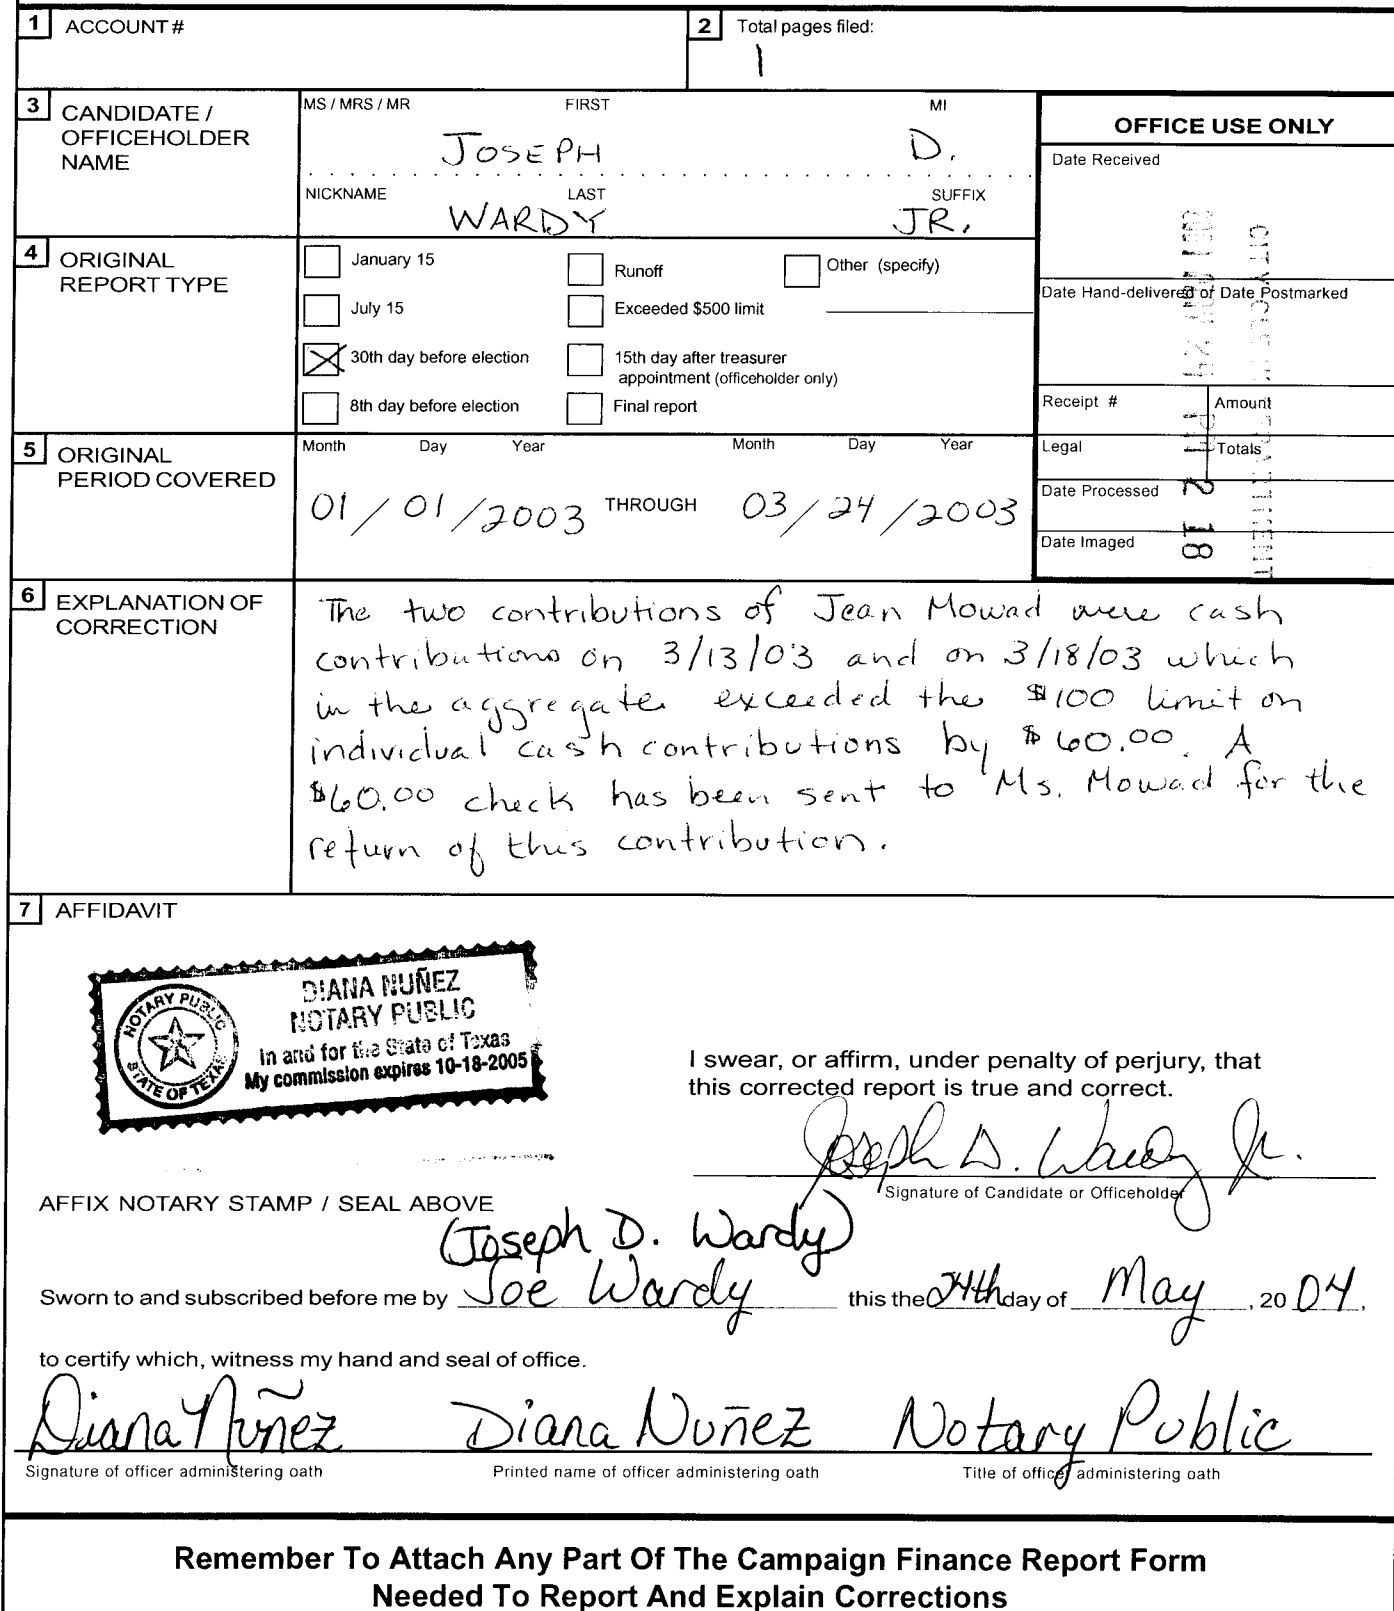 1 ACCOUNT #
2 Total pages filed:
1
3 CANDIDATE / OFFICEHOLDER NAME
MS / MRS / MR FIRST MI
JOSEPH D.
NICKNAME LAST SUFFIX
WARDY JR.
OFFICE USE ONLY
Date Received
Date Hand-delivered or Date Postmarked
Receipt # Amount
Legal Totals
Date Processed
Date Imaged
PM 2 18
4 ORIGINAL REPORT TYPE
January 15
Runoff
Other (specify)
July 15
Exceeded $500 limit
30th day before election
15th day after treasurer
appointment (officeholder only)
8th day before election
Final report
5 ORIGINAL PERIOD COVERED
Month Day Year Month Day Year
01 / 01 / 2003 THROUGH 03 / 24 / 2003
6 EXPLANATION OF CORRECTION
The two contributions of Jean Mowad were cash
contributions on 3/13/03 and on 3/18/03 which
in the aggregate exceeded the $100 limit on
individual cash contributions by $60.00. A
$60.00 check has been sent to Ms. Mowad for the
return of this contribution.
7 AFFIDAVIT
DIANA NUÑEZ
NOTARY PUBLIC
In and for the State of Texas
My commission expires 10-18-2005
NOTARY PUBLIC
STATE OF TEXAS
I swear, or affirm, under penalty of perjury, that
this corrected report is true and correct.
Joseph D. Wardy Jr.
Signature of Candidate or Officeholder
AFFIX NOTARY STAMP / SEAL ABOVE
(Joseph D. Wardy)
Sworn to and subscribed before me by Joe Wardy this the 24th day of May, 20 04,
to certify which, witness my hand and seal of office.
Diana Nuñez Diana Nuñez Notary Public
Signature of officer administering oath Printed name of officer administering oath Title of officer administering oath
Remember To Attach Any Part Of The Campaign Finance Report Form
Needed To Report And Explain Corrections